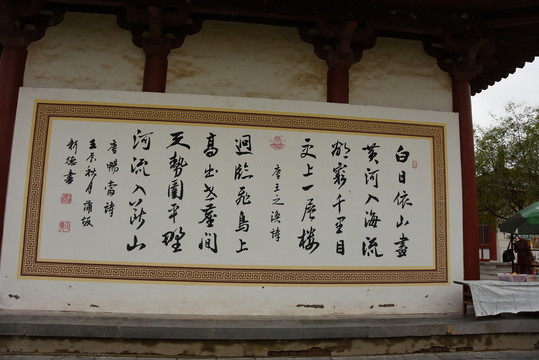 白日依山盡
黄河入海流
欲窮千里目
更上一層樓
唐王之渙詩
迥臨飛鳥上
高出世塵間
天勢圍平野
河流入斷山
唐暢當詩
壬辰秋月蒲坂
新德書